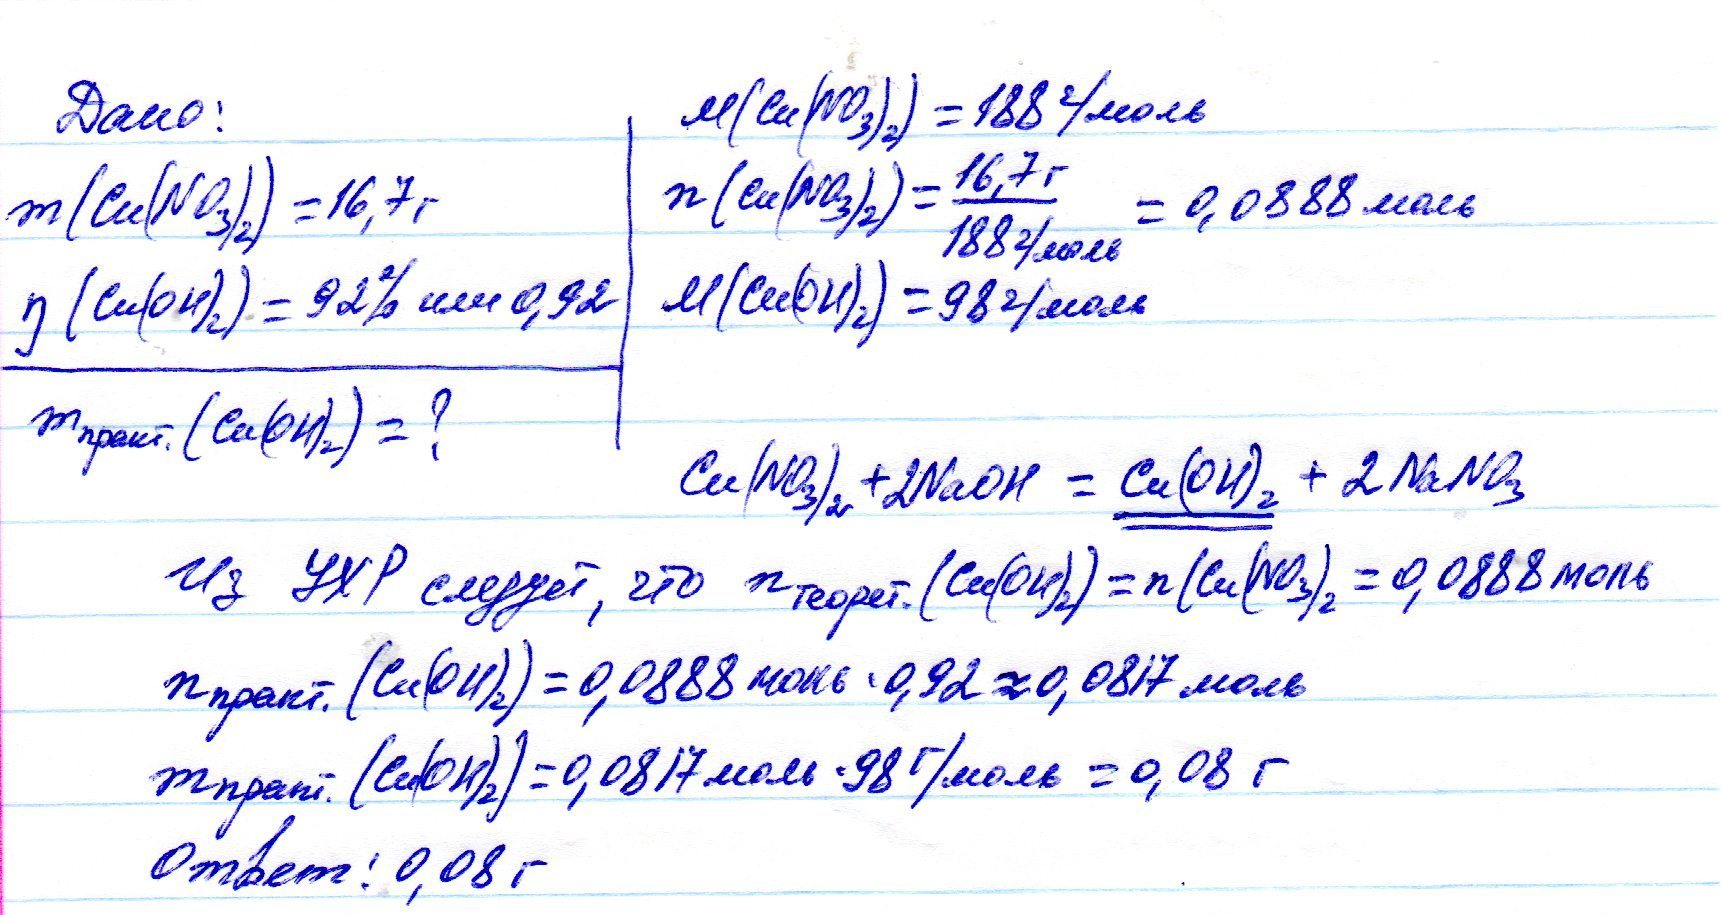 Дано:
m(Cu(NO3)2) = 16,7 г
η (Cu(OH)2) = 92% или 0,92
mпракт. (Cu(OH)2) = ?
M(Cu(NO3)2) = 188 г/моль
n(Cu(NO3)2) = 16,7 г / 188 г/моль = 0,0888 моль
M(Cu(OH)2) = 98 г/моль
Cu(NO3)2 + 2NaOH = Cu(OH)2 + 2NaNO3
Из УХР следует, что nтеорет. (Cu(OH)2) = n(Cu(NO3)2 = 0,0888 моль
nпракт. (Cu(OH)2) = 0,0888 моль · 0,92 ≈ 0,0817 моль
mпракт. (Cu(OH)2) = 0,0817 моль · 98 г/моль = 0,08 г
Ответ: 0,08 г